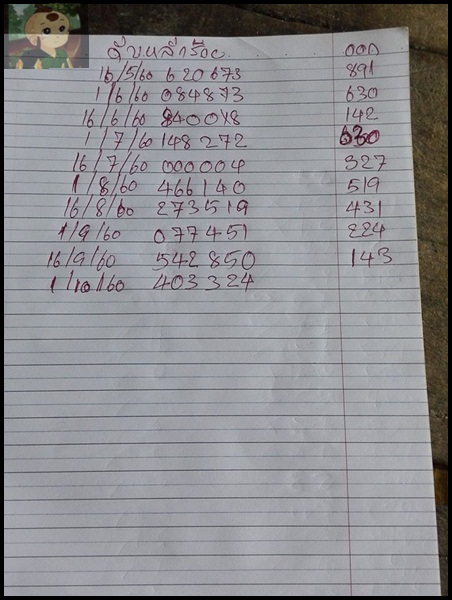 ดับหลักร้อย 000
16/5/60 620673 891
1/6/60 084873 630
16/6/60 840018 142
1/7/60 148272 630
16/7/60 000004 327
1/8/60 466140 519
16/8/60 273519 431
1/9/60 077451 224
16/9/60 542850 143
1/10/60 403324